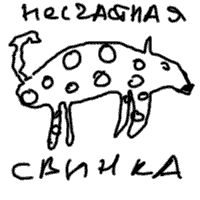 НЕСЧАСТНАЯ
СВИНКА